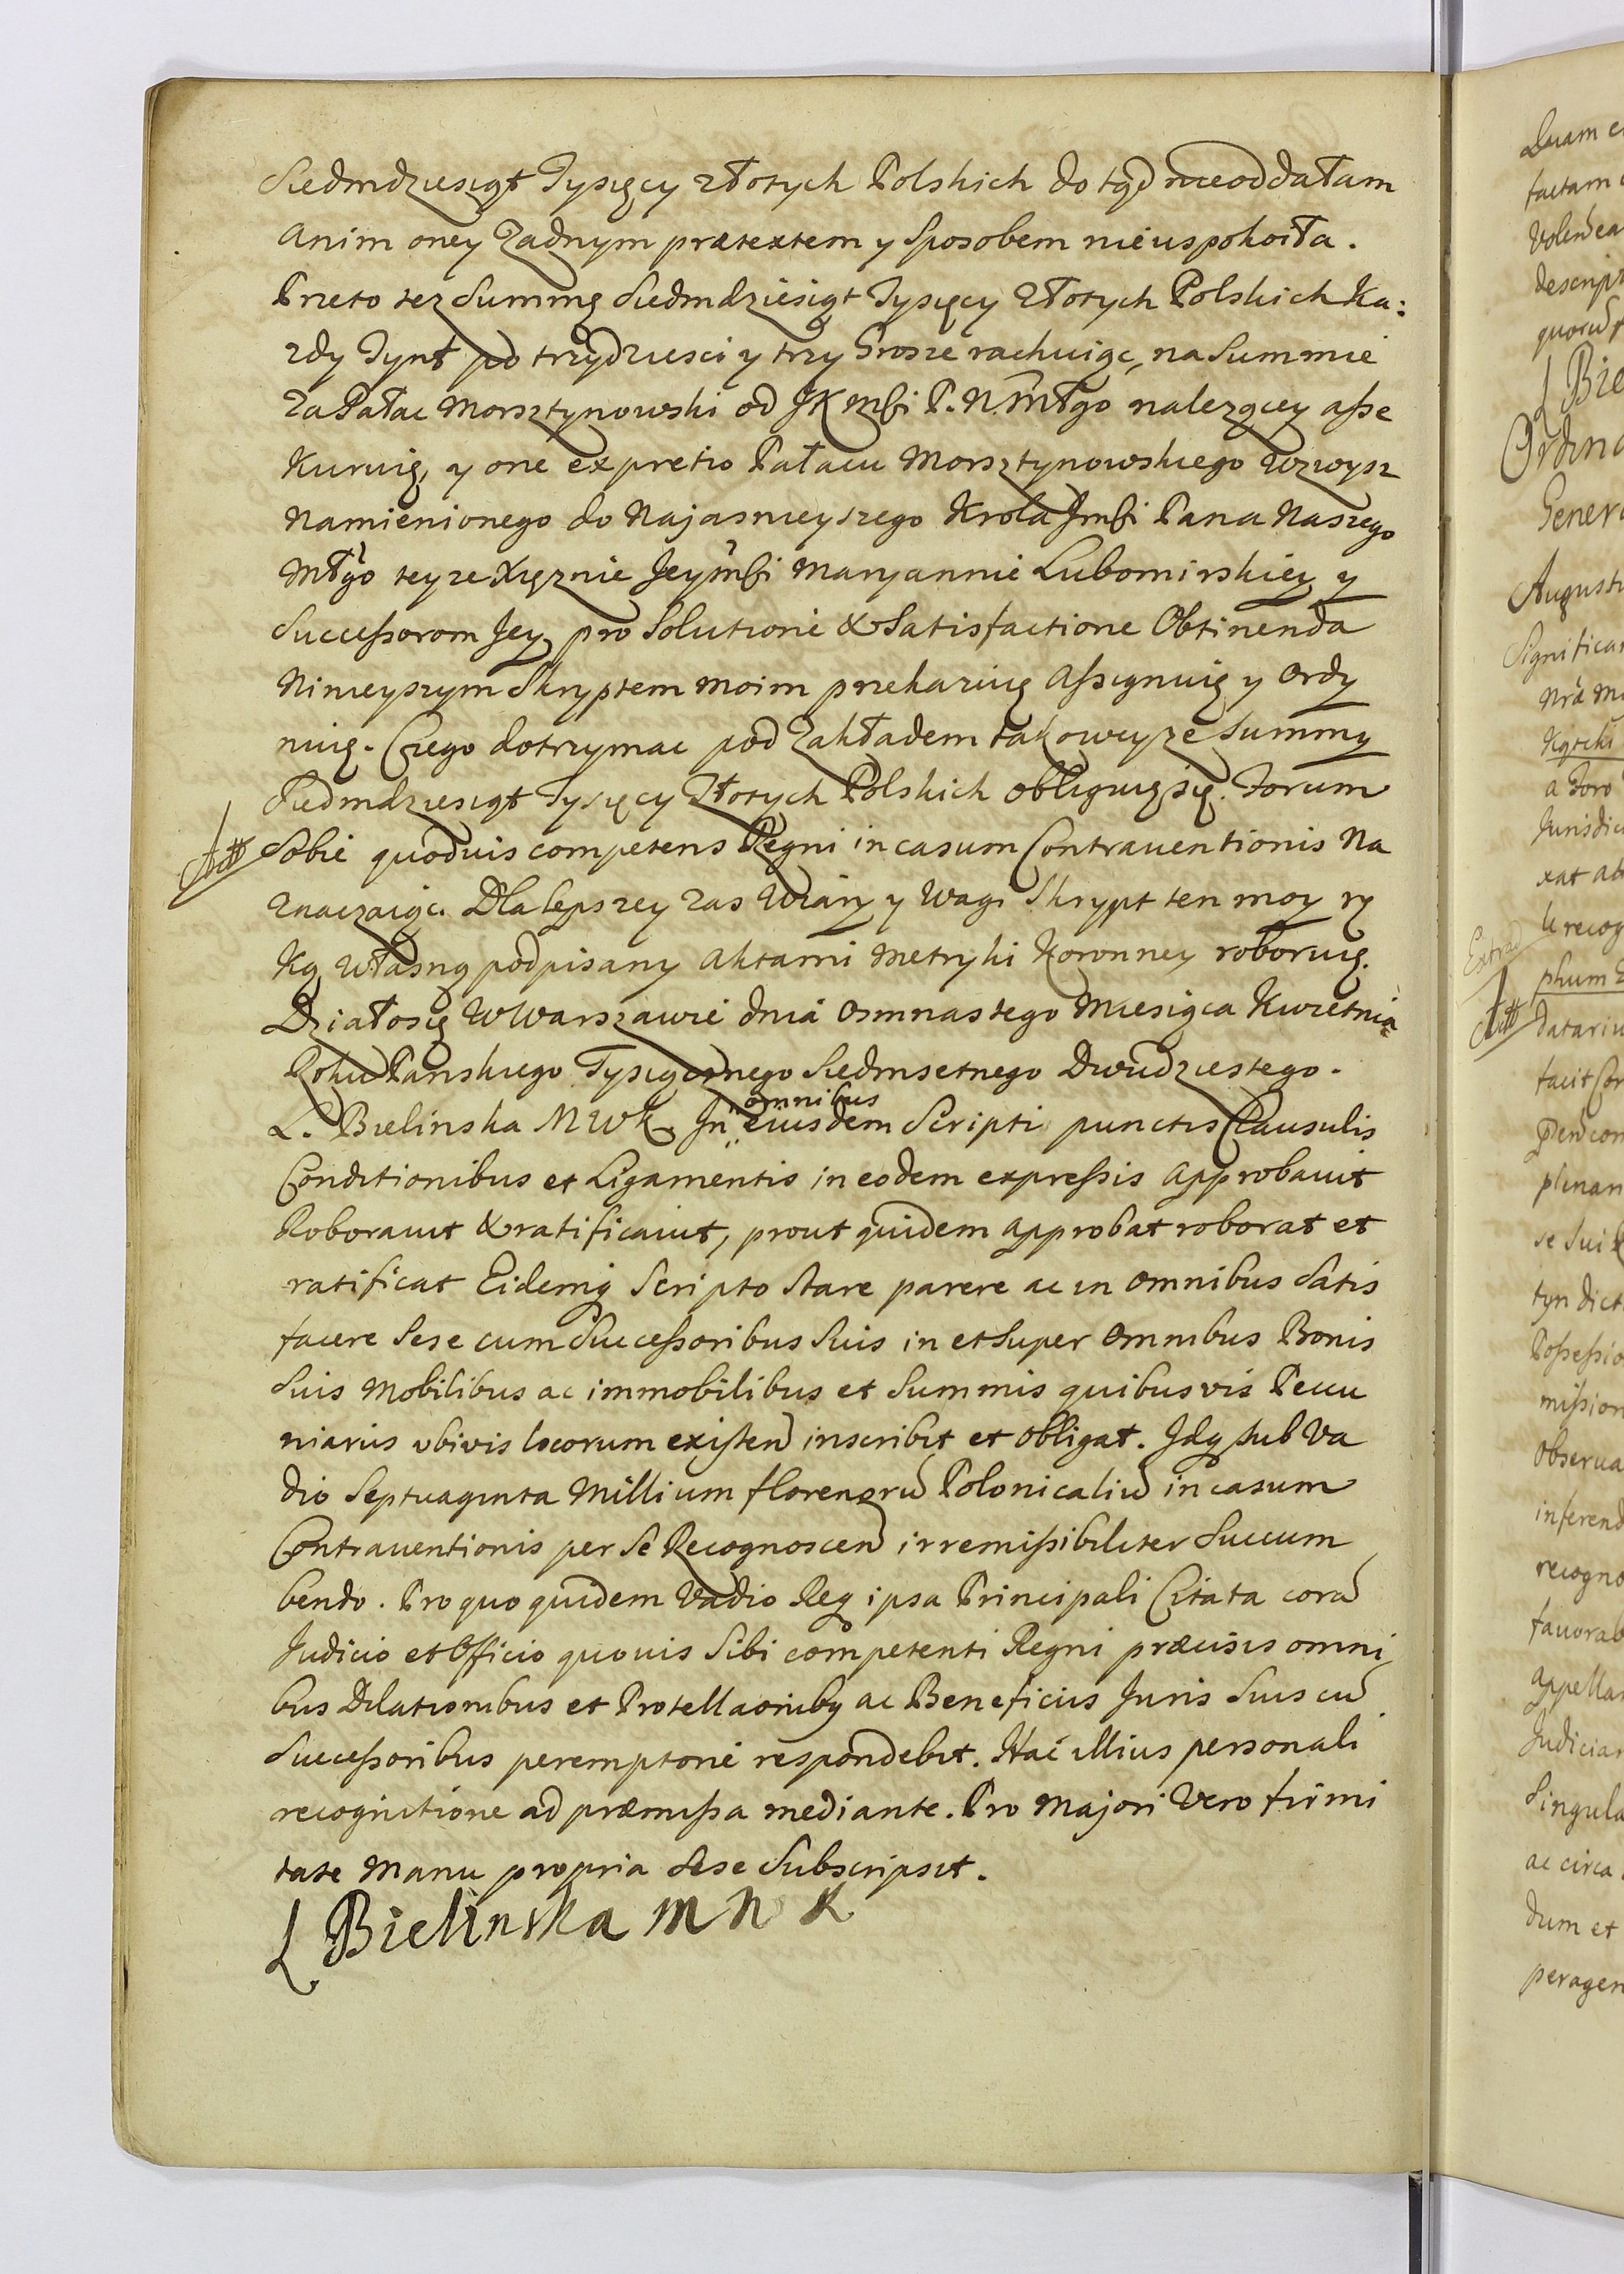 Siedmdziesiąt Tysięcy złotych Polskich do tąd nieoddałam
anim oney żadnym prætextem y sposobem nieuspokoiła.
Przeto tez Summę Siedmdziesiąt Tysięcy złotych Polskich Ka:
zdy Tynf po trzydziesci y trzy Grosze rachuiąc, na Summie
za Pałac Morsztynowski od JKMsci P. N. Młgo nalezącey asse
kuruię, y one ex pretio Pałacu Morsztynowskiego wzwysz
namienionego do Najasnieyszego Krola Jmsci Pana Naszego
Młgo teyze Xięznie Jeymsci Maryannie Lubomirskiey y
Successorom Jey, pro Solutione & Satisfactione Obtinenda
Ninieyszym Skryptem moim przekazuię assignuię y Ordy
nuię. Czego dotrzymac pod Zakładem takoweyze Summy
Siedmdziesiąt Tysięcy Złotych Polskich obliguię się. Forum
Sobie quoduis competens Regni in casum Contrauentionis Na
znaczaiąc. Dla lepszey zas Wiary y Wagi Skrypt ten moy rę
ką własną podpisany Aktami Metryki Koronney roboruię.
Działo się w Warszawie dnia osmnastego Miesiąca Kwietnia
Roku Panskiego Tysiącznego Siedmsetnego Dwudziestego.
L. Bielinska M W K. In omnibus eiusdem Scripti punctis Clausulis
Conditionibus et Ligamentis in eodem expressis approbauit
Roborauit & ratificauit, prout quidem approbat roborat et
ratificat Eidemq Scripto stare parere ac in omnibus Satis
facere Sese cum Successoribus Suis in et Super omnibus Bonis
Suis Mobilibus ac immobilibus et Summis quibusvis Pecu
niariis ubivis locorum existen inscribit et obligat. Idq sub Va
dio Septuaginta Millium florenoru Polonicaliu in casum
Contrauentionis per Se Recognoscen irremissibiliter Succum
bendo. Pro quo quidem Vadio Req ipsa Principali Citata cora
Judicio et Officio quouis Sibi competenti Regni præcisis omni
bus Dilationibus et Protellaoniby ac Beneficiis Juris Suis cu
Successoribus peremptorie respondebit. Hac illius personali
recognitione ad præmissa mediante. Pro Majori Vero firmi
tate Manu propria Sese Subscripsit.
L Bielinska M N K
Quam
factam
Volen ea
descript
quoru
L Bie
Ordina
Genera
Augustu
Significa
Nra M
a Foro
Jurisdic
xat
recog
Extrad
phum
datariu
facit Con
plenar
se sui
tyn dict
Possessio
mission
Observa
inferend
recogno
fauorab
appella
Judiciar
Singula
ac circa
dum et
peragen